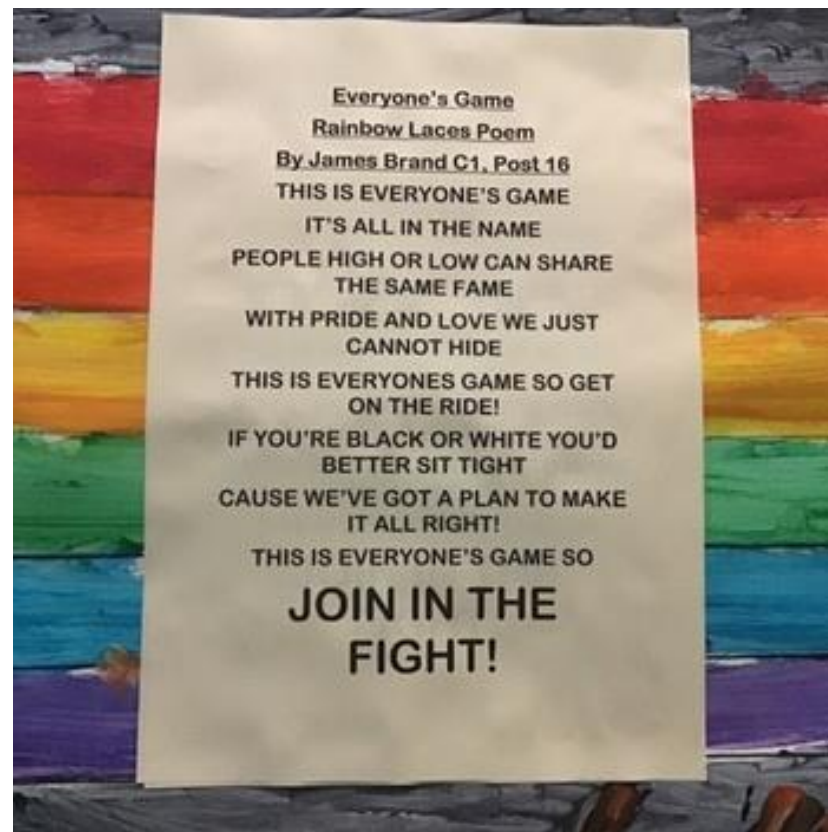 Everyone's Game
Rainbow Laces Poem
By James Brand C1, Post 16
THIS IS EVERYONE'S GAME
IT'S ALL IN THE NAME
PEOPLE HIGH OR LOW CAN SHARE
THE SAME FAME
WITH PRIDE AND LOVE WE JUST
CANNOT HIDE
THIS IS EVERYONES GAME SO GET
ON THE RIDE!
IF YOU'RE BLACK OR WHITE YOU'D
BETTER SIT TIGHT
CAUSE WE'VE GOT A PLAN TO MAKE
IT ALL RIGHT!
THIS IS EVERYONE'S GAME SO
JOIN IN THE
FIGHT!